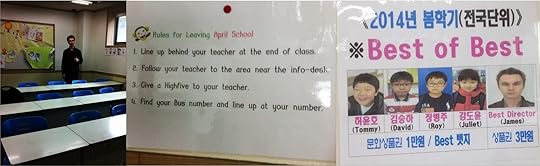 Rules for Leaving April School
1. Line up behind your teacher at the end of class.
2. Follow your teacher to the area near the info-desk.
3. Give a Highfive to your teacher.
4. Find your Bus number and line up at your number.
《2014년 봄학기(전국단위)》
※Best of Best
허윤호 김승하 장병주 김도윤 Best Director
(Tommy) (David) (Roy) (Juliet) (James)
문화상품권 1만원 / Best 뱃지 상품권 3만원